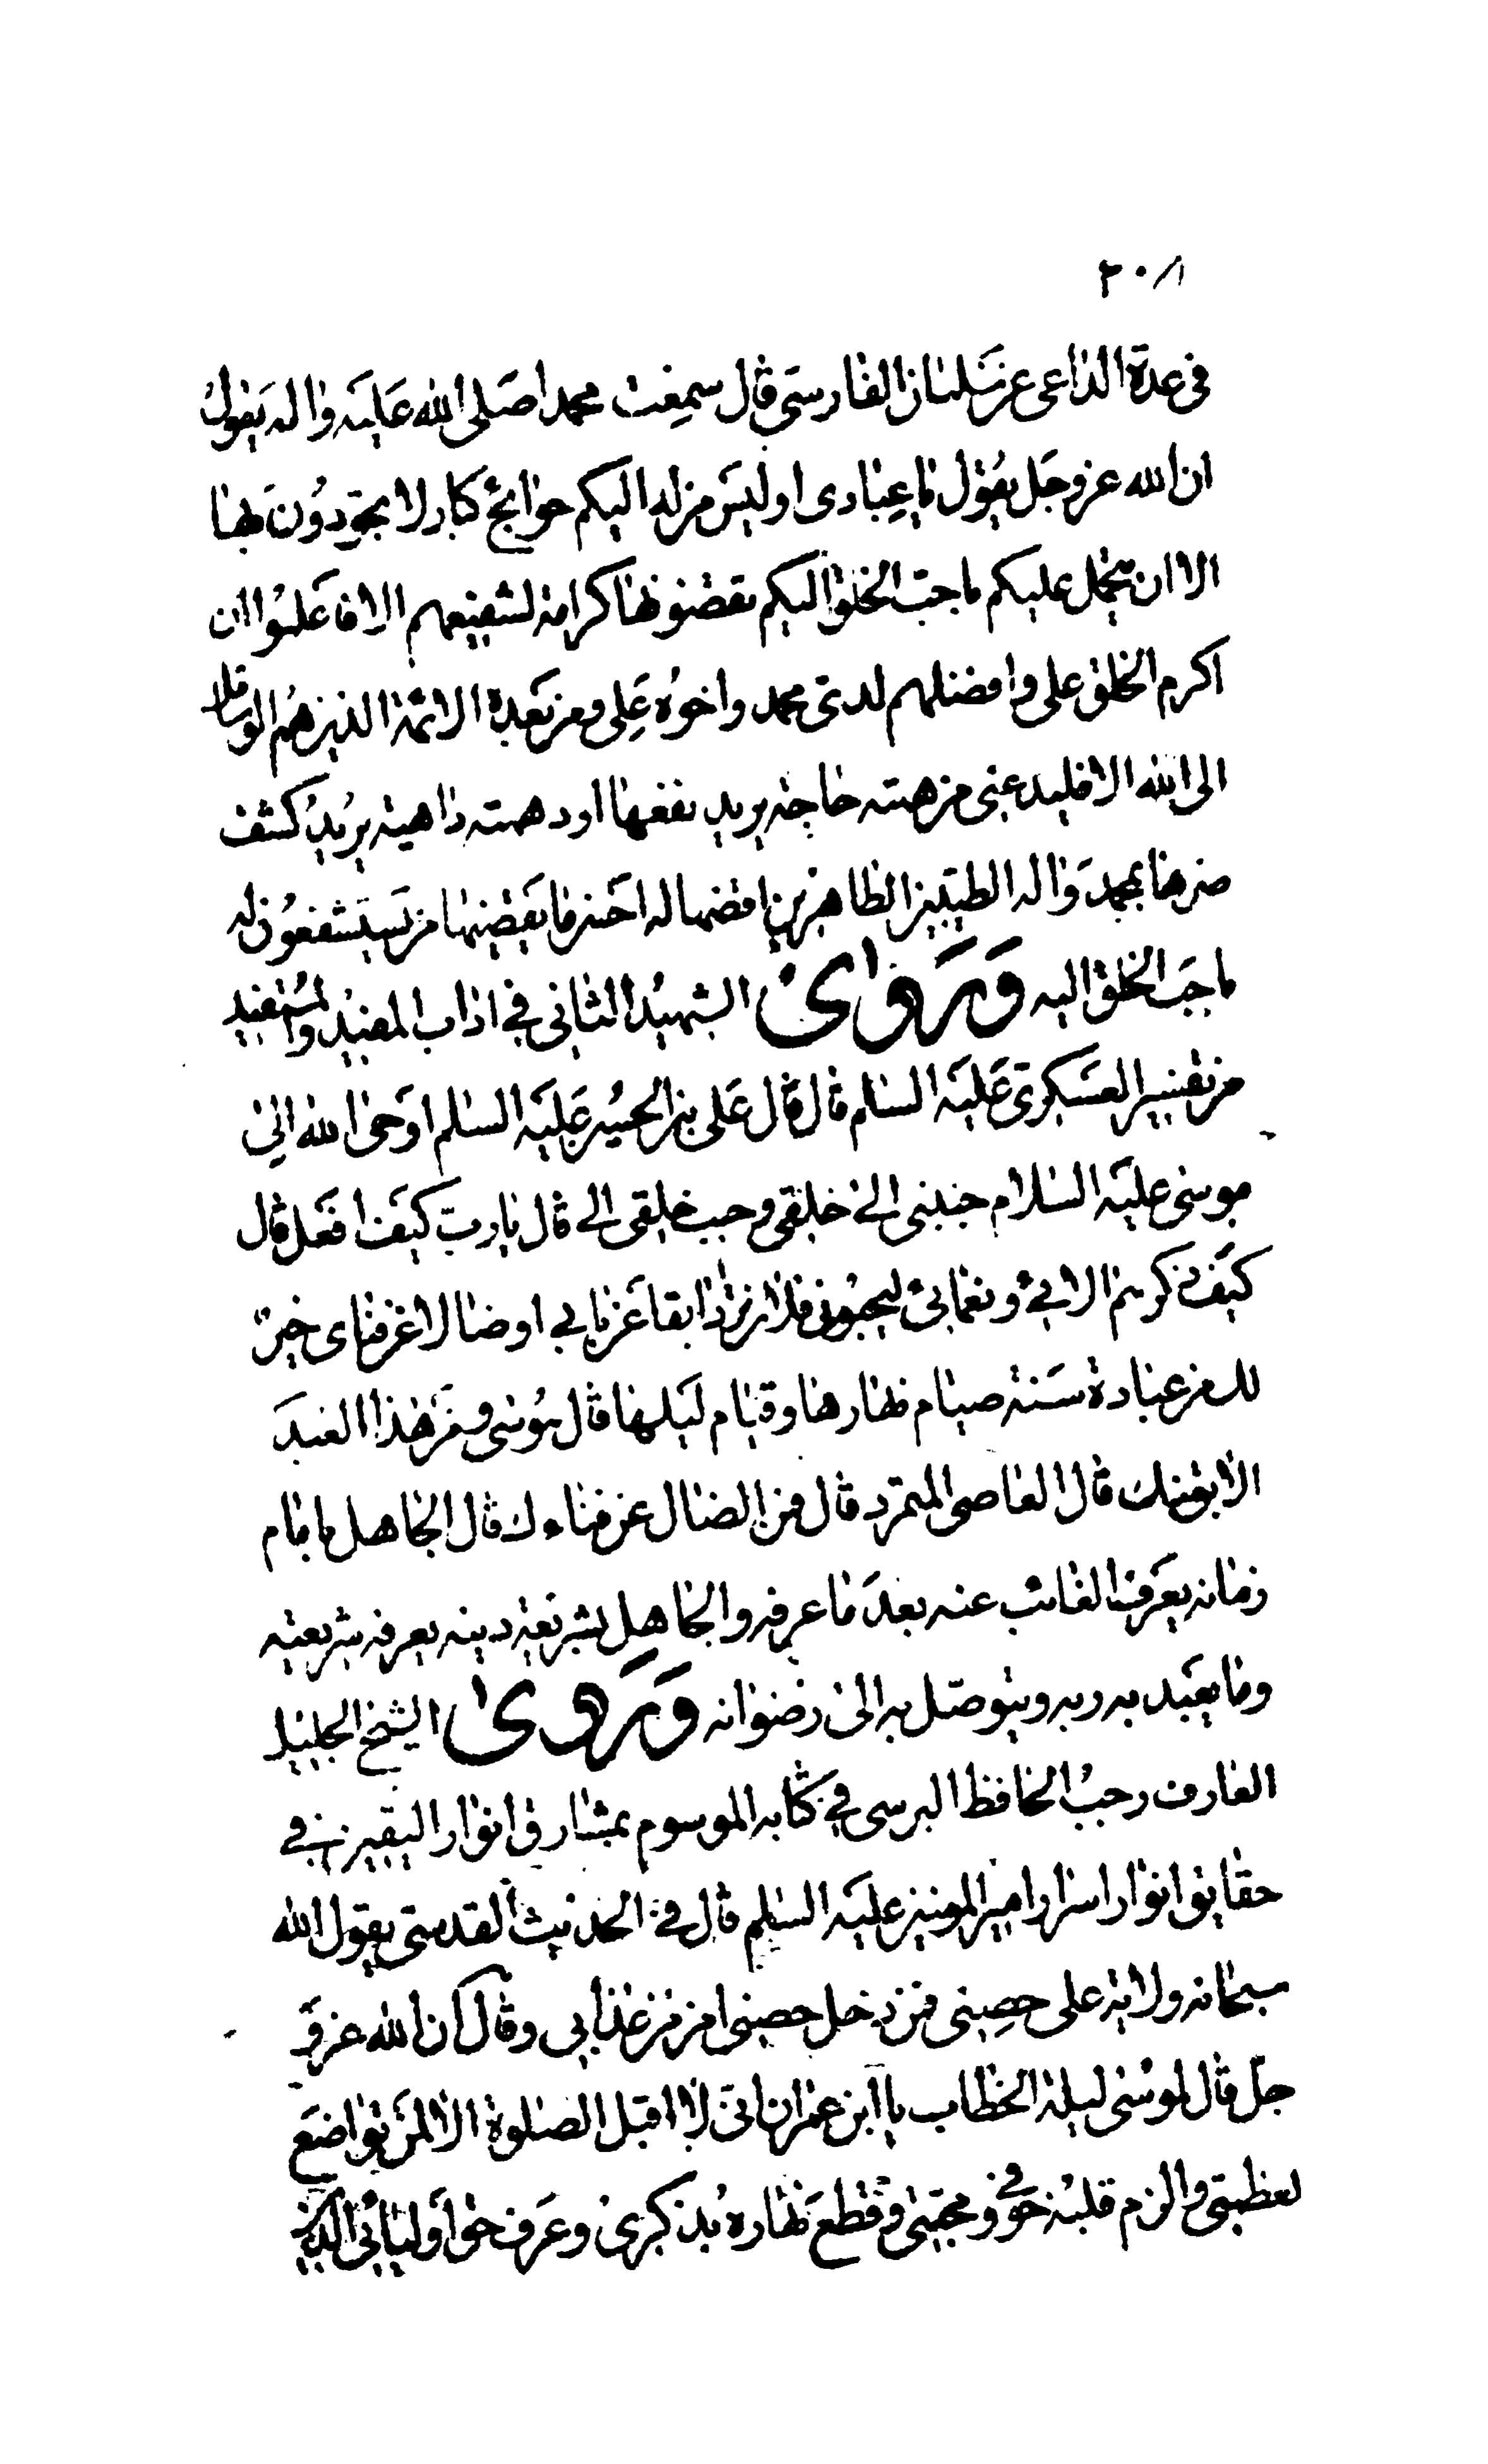 ٢٠٨
فى عدة الداعى عن سلمان الفارسى قال سمعت محمدا صلى الله عليه واله يقول
ان الله عز وجل يقول يا عبادى اوليس من له اليكم حوائج كبار لا تجودون بها
الا ان يتحمل عليكم باحب الخلق اليكم تقضونها كرامة لشفيعهم الا فاعلموا ان
اكرم الخلق على وافضلهم لدى محمد واخوه على ومن بعده الائمة الذين هم الوسائل
الى الله الا فليدعنى من همته حاجة يريد نفعها او دهمته داهية يريد كشف
ضرها بمحمد واله الطيبين الطاهرين اقضها له احسن ما يقضيها من تستشفعون له
باحب الخلق اليه وروى الشهيد الثانى فى اداب المفيد والمستفيد
من تفسير العسكرى عليه السلم قال قال على بن الحسين عليه السلم اوحى الله الى
موسى عليه السلام حببنى الى خلقى وحبب خلقى الى قال يا رب كيف افعل قال
ذكرهم الائى ونعمائى ليحبونى فلان ترد ابقا عن بابى او ضالا عن فنائى خير
لك من عبادة سنة صيام نهارها وقيام ليلها قال موسى ومن هذا العبد
الابق منك قال العاصى المتمرد قال فمن الضال عن فنائك قال الجاهل بامام
زمانه يعرفه الغائب عنه بعد ما عرفه والجاهل بشريعة دينه يعرفه شريعته
وما يعبد به ربه ويتوصل به الى رضوانه وروى الشيخ الجليل
العارف رجب الحافظ البرسى فى كتابه الموسوم بمشارق انوار اليقين فى
حقايق انوار اسرار امير المومنين عليه السلم قال فى الحديث القدسى يقول الله
سبحانه ولاية على حصنى فمن دخل حصنى امن من عذابى وقال ان الله عز و
جل قال لموسى ليلة الخطاب يا ابن عمران انى لا اقبل الصلوة الا لمن تواضع
لعظمتى والزم قلبه خوفى ومحبتى وقطع نهاره بذكرى وعرف حق اوليائى الذين